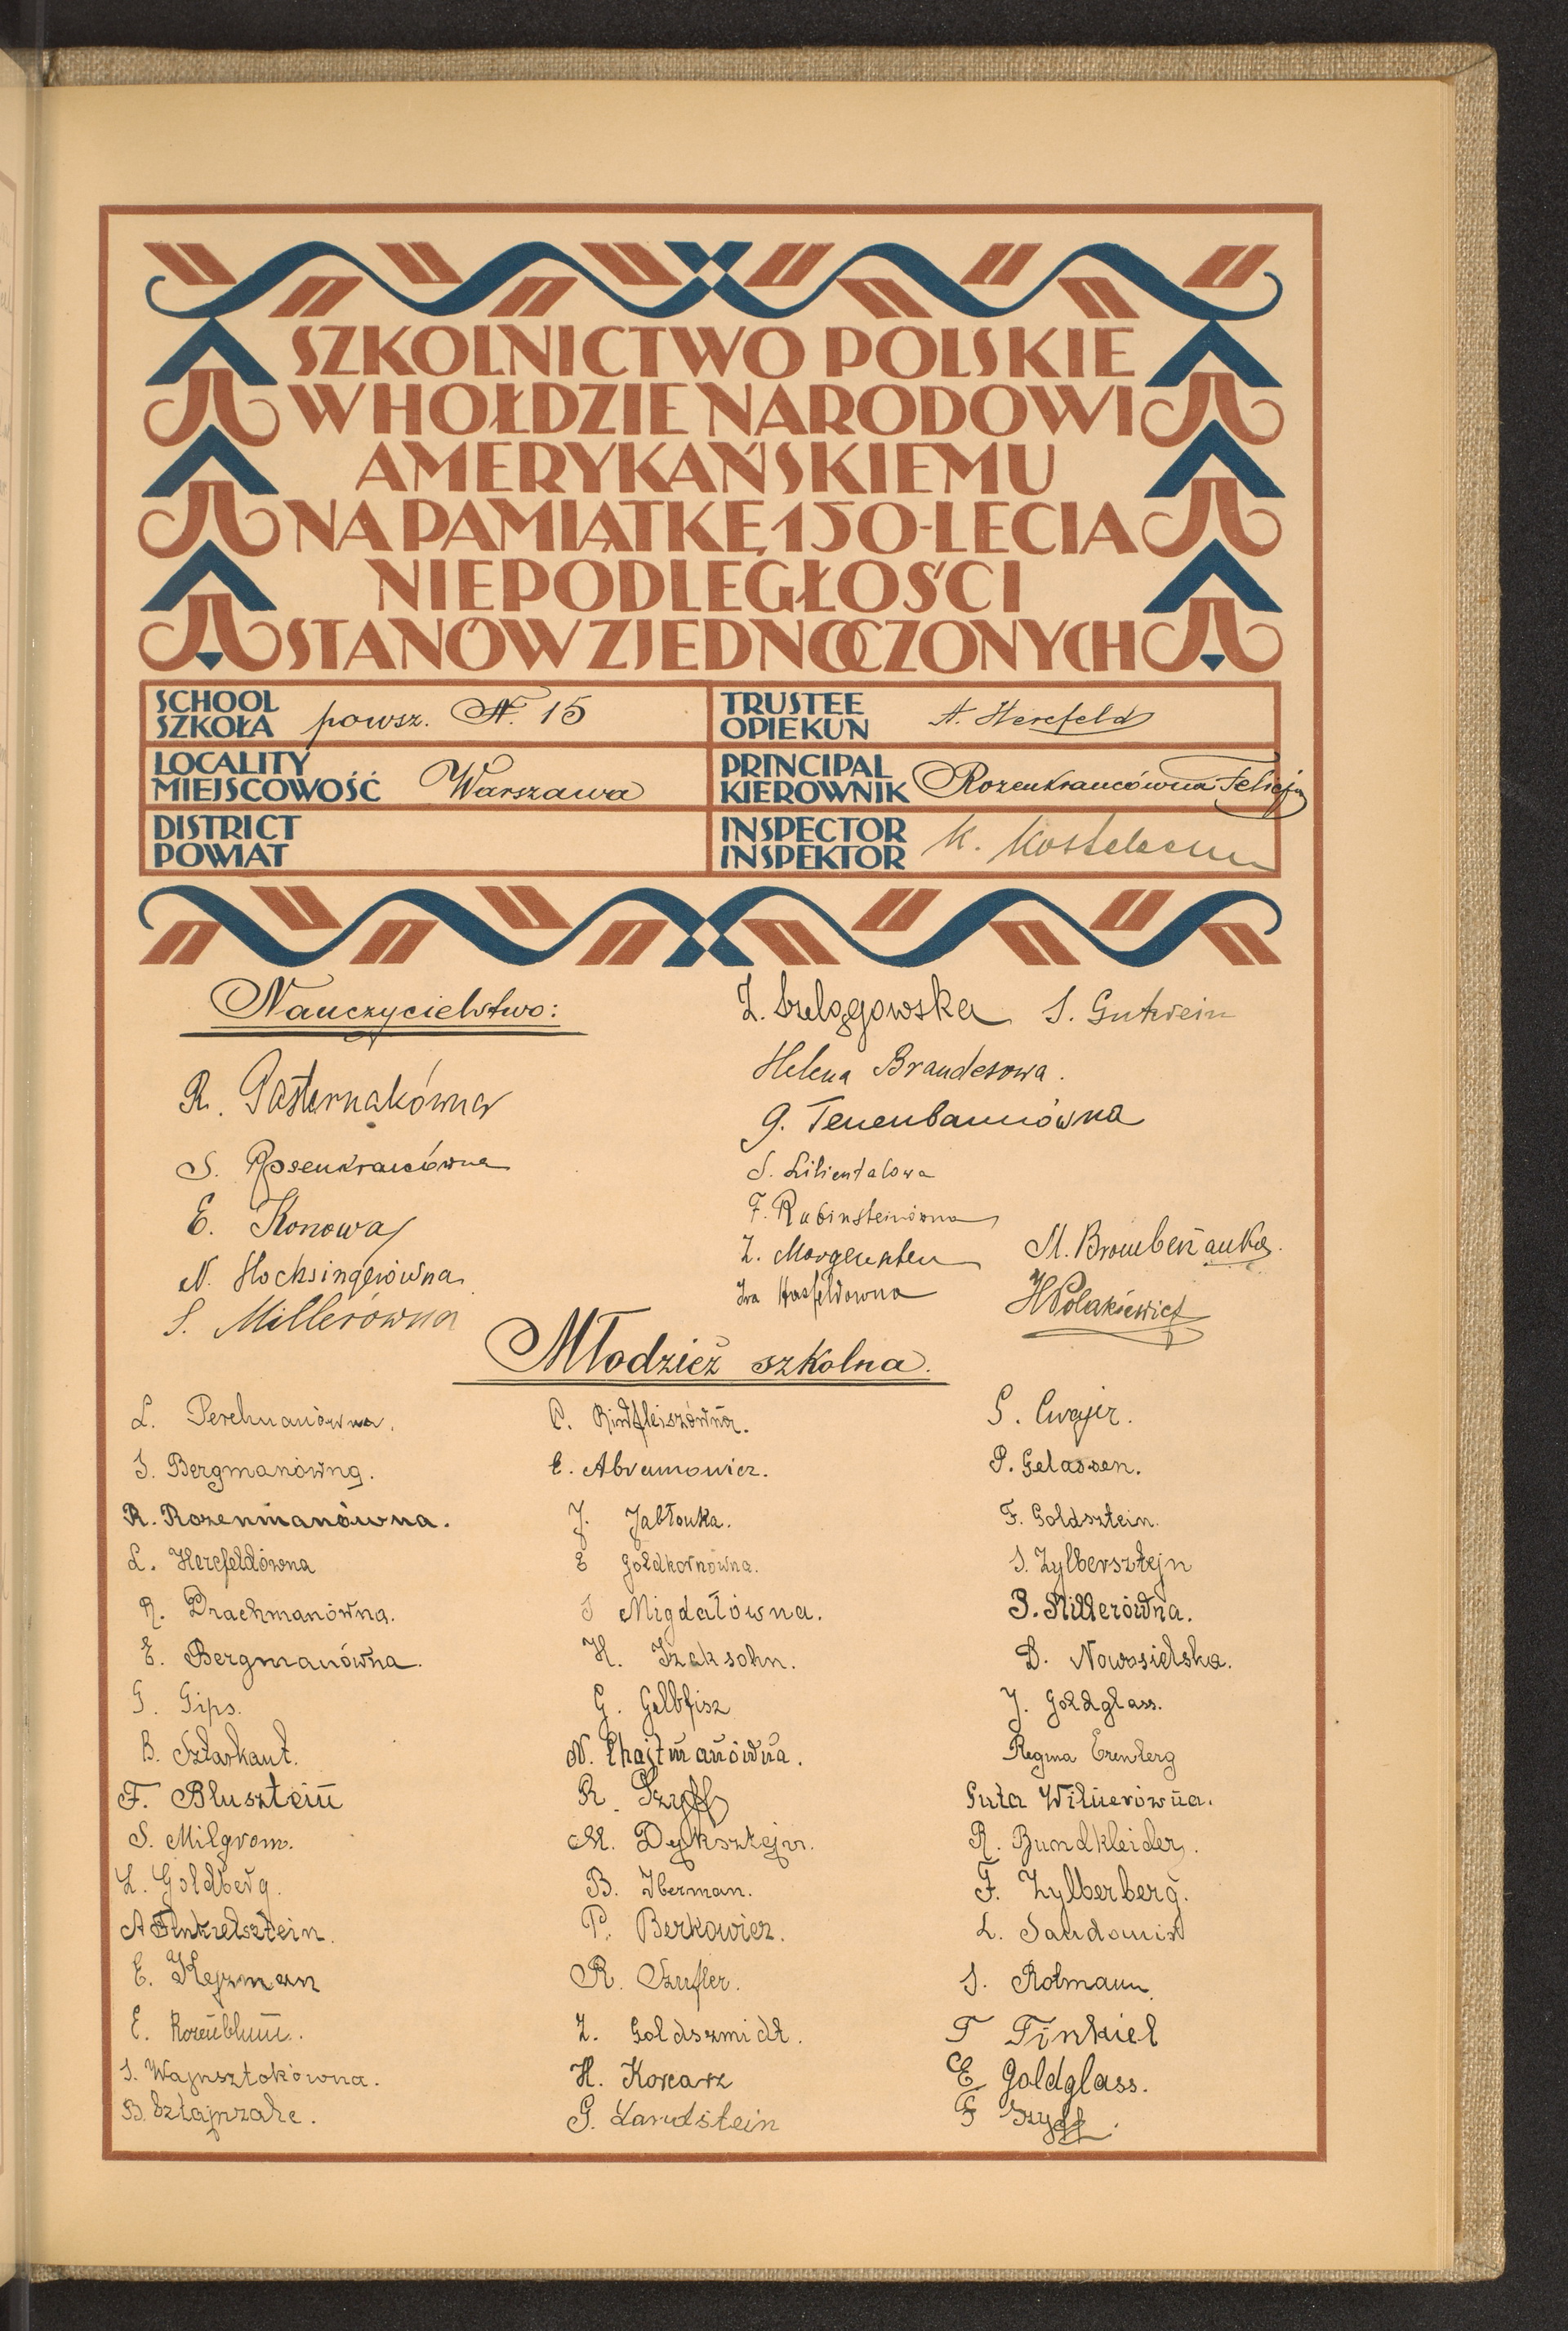 SZKOLNICTWO POLSKIE
W HOŁDZIE NARODOWI
AMERYKAŃSKIEMU
NA PAMIĄTKĘ 150-LECIA
NIEPODLEGŁOŚCI
STANÓW ZJEDNOCZONYCH
SCHOOL
SZKOŁA powsz. N. 15
TRUSTEE
OPIEKUN A. Hercfeld
LOCALITY
MIEJSCOWOŚĆ Warszawa
PRINCIPAL
KIEROWNIK Rozenkrancówna Felicja
DISTRICT
POWIAT
INSPECTOR
INSPEKTOR K.
Nauczycielstwo:
R. Pasternakówna
S. Rosenkrancówna
E. Konowa
N. Hocksingerówna
S. Millerówna
Z. Szelągowska
S. Gutwein
Helena Brandesowa.
G. Tenenbaumówna
S. Lilientalowa
F. Rubinsteinówna
Z. Morgensten
Iza Hasfeldowna
M. Bromberżanka.
H Polakiewicz
Młodzież szkolna.
L. Perelmanówna.
S. Bergmanówna.
R. Rozenmanówna.
L. Hercfeldówna
R. Drachmanówna.
E. Bergmanówna.
G. Gips.
B. Sztarkant.
F. Blusztein
S. Milgrom.
L. Goldberg.
A Finkielsztein.
E. Kejzman
E. Rozenblum.
S. Wajnsztokówna.
B. Sztajnzale.
C. Rindflejszówna.
E. Abramowicz.
J. Jabłonka.
E Goldkornówna.
S Migdałówna.
H. Izaksohn.
G. Gelbfisz
N. Chajtmanówna.
R. Szyff
M. Dyksztejn.
B. Iberman.
P. Berkowicz.
R. Szufler.
Z. Goldszmidt.
H. Korcarz
G. Landstein
S. Cwajer.
P. Gelassen.
F. Goldsztein.
S. Zylbersztejn
S. Millerówna.
D. Nowosielska.
J. Goldglass.
Regina Erenberg
Guta Wilnerówna.
R. Bundkleider.
F. Zylberberg.
L. Sandomir
S. Rotmann.
T Finkiel
E Goldglass.
F Szyff.